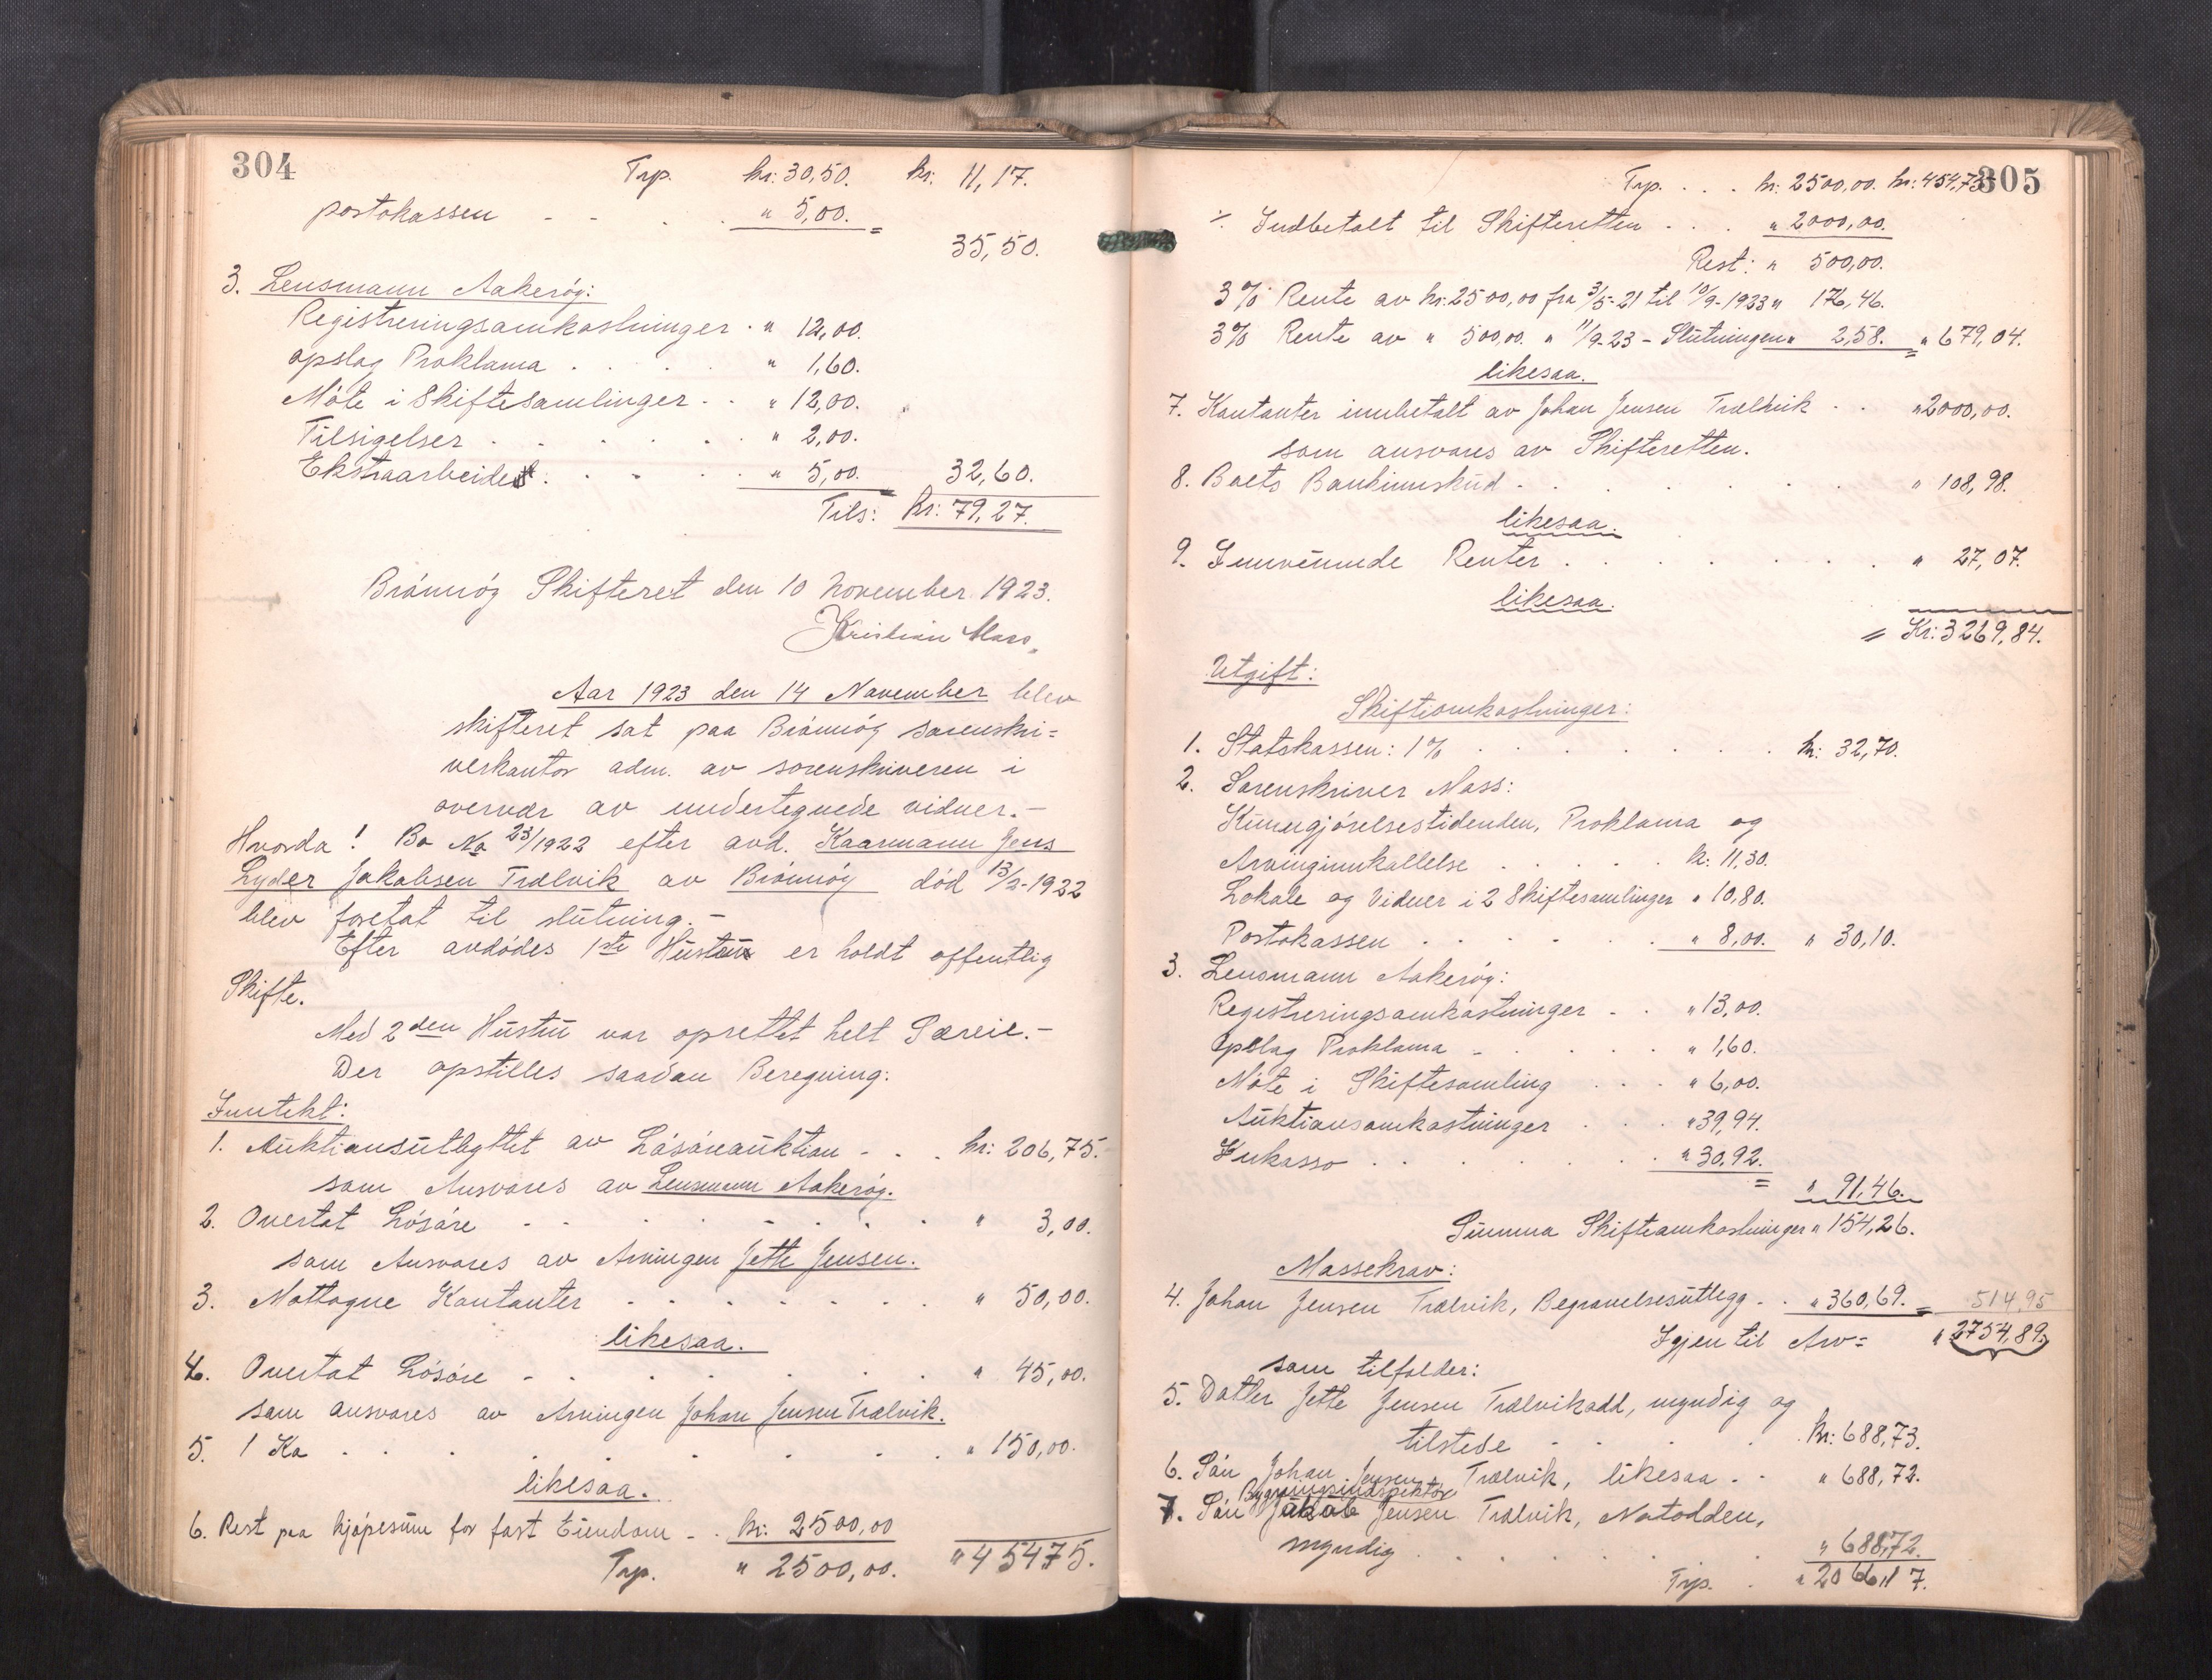 304
Trp. kr: 30,50. kr. 11,17.
portokassen - - . . " 5,00. =
35,50.
3. Lensmann Aakerøy:
Registreringsomkostninger . " 12,00.
opslag Proklama . . . . " 1,60.
Møte i Skiftesamlinger . . " 12,00.
Tilsigelser . . . . . . " 2,00.
Ekstraarbeidet . . . . . " 5,00. 32,60.
Tils: kr: 79,27.
Brönnöy Skifteret den 10 November 1923.
Kristian Mass.
Aar 1923 den 14 November blev
skifteret sat paa Brönnöy sorenskri=
verkontor adm. av sorenskriveren i
overvær av undertegnede vidner.-
Hvorda! Bo No 23/1922 efter avd. Kaarmann Jens
Lyder Jakobsen Trælvik av Brönnöy död 13/2-1922
blev foretat til slutning.-
Efter avdödes 1ste Hustru er holdt offentlig
Skifte.
Med 2den Hustru var oprettet helt Særeie.-
Der opstilles saadan Beregning:
Inntekt:
1. Auktionsutbyttet av Lösöreauktion - . . kr: 206,75.
som Ansvares av Lensmann Aakerøy.
2. Overtat Lösöre - - . . - . . . " 3,00.
som Ansvares av Arvingen Jette Jensen.
3. Mottagne Kontanter . - . - . . . " 50,00.
likesaa.
4. Overtat Lösöre - . . . . . . " 45,00.
som ansvares av Arvingen Johan Jensen Trælvik.
5. 1 Ko . . . . . . . . " 150,00.
likesaa.
6. Rest paa kjøpesum for fast Eiendom - . kr: 2500,00
Trp. " 2500,00. " 45475.
305
Trp. . . . kr: 2500,00. kr: 454,75
÷ Indbetalt til Skifteretten . . . " 2000,00.
Rest: " 500,00.
3% Rente av kr: 2500,00 fra 3/5-21 til 10/9-1923 " 176,46.
3% Rente av " 500,00. " 11/9-23 - Slutningen " 2,58. = " 679,04.
likesaa.
7. Kontanter innbetalt av Johan Jensen Trælvik . . " 2000,00.
som ansvares av Skifteretten.
8. Boets Bankinnskud . . . . . . . " 108,98.
likesaa.
9. Innvunnede Renter . . . . . . . " 27,07.
likesaa.
= Kr: 3269,84.
Utgift:
Skifteomkostninger:
1. Statskassen: 1% . . . . . . . . kr: 32,70.
2. Sorenskriver Mass:
Kunngjørelsestidenden, Proklama og
Arvinginnkallelse . . . . . k: 11,30.
Lokale og Vidner i 2 Skiftesamlinger " 10,80.
Portokassen . . . . . . " 8,00. " 30,10.
3. Lensmann Aakerøy:
Registreringsomkostninger . . " 13,00.
Opslag Proklama - . . . . " 1,60.
Møte i Skiftesamling . . . " 6,00.
Auktionsomkostninger . . . " 39,94.
Inkasso . . . . . . . " 30,92. =
" 91,46.
Summa Skifteomkostninger " 154,26.
Massekrav:
4. Johan Jensen Trælvik, Begravelsesutlegg . . " 360,69. = 514,95
Igjen til Arv = " 2754,89.
som tilfalder:
5. Datter Jette Jensen Trælvikodd, myndig og
tilstede . . . . . kr: 688,73.
6. Sön Johan Jensen Trælvik, likesaa . . " 688,72.
Bygningsindspektör
7. Sön Jakob Jensen Trælvik, Notodden,
myndig . . . . . . . " 688,72.
Trp. . " 2066,17.